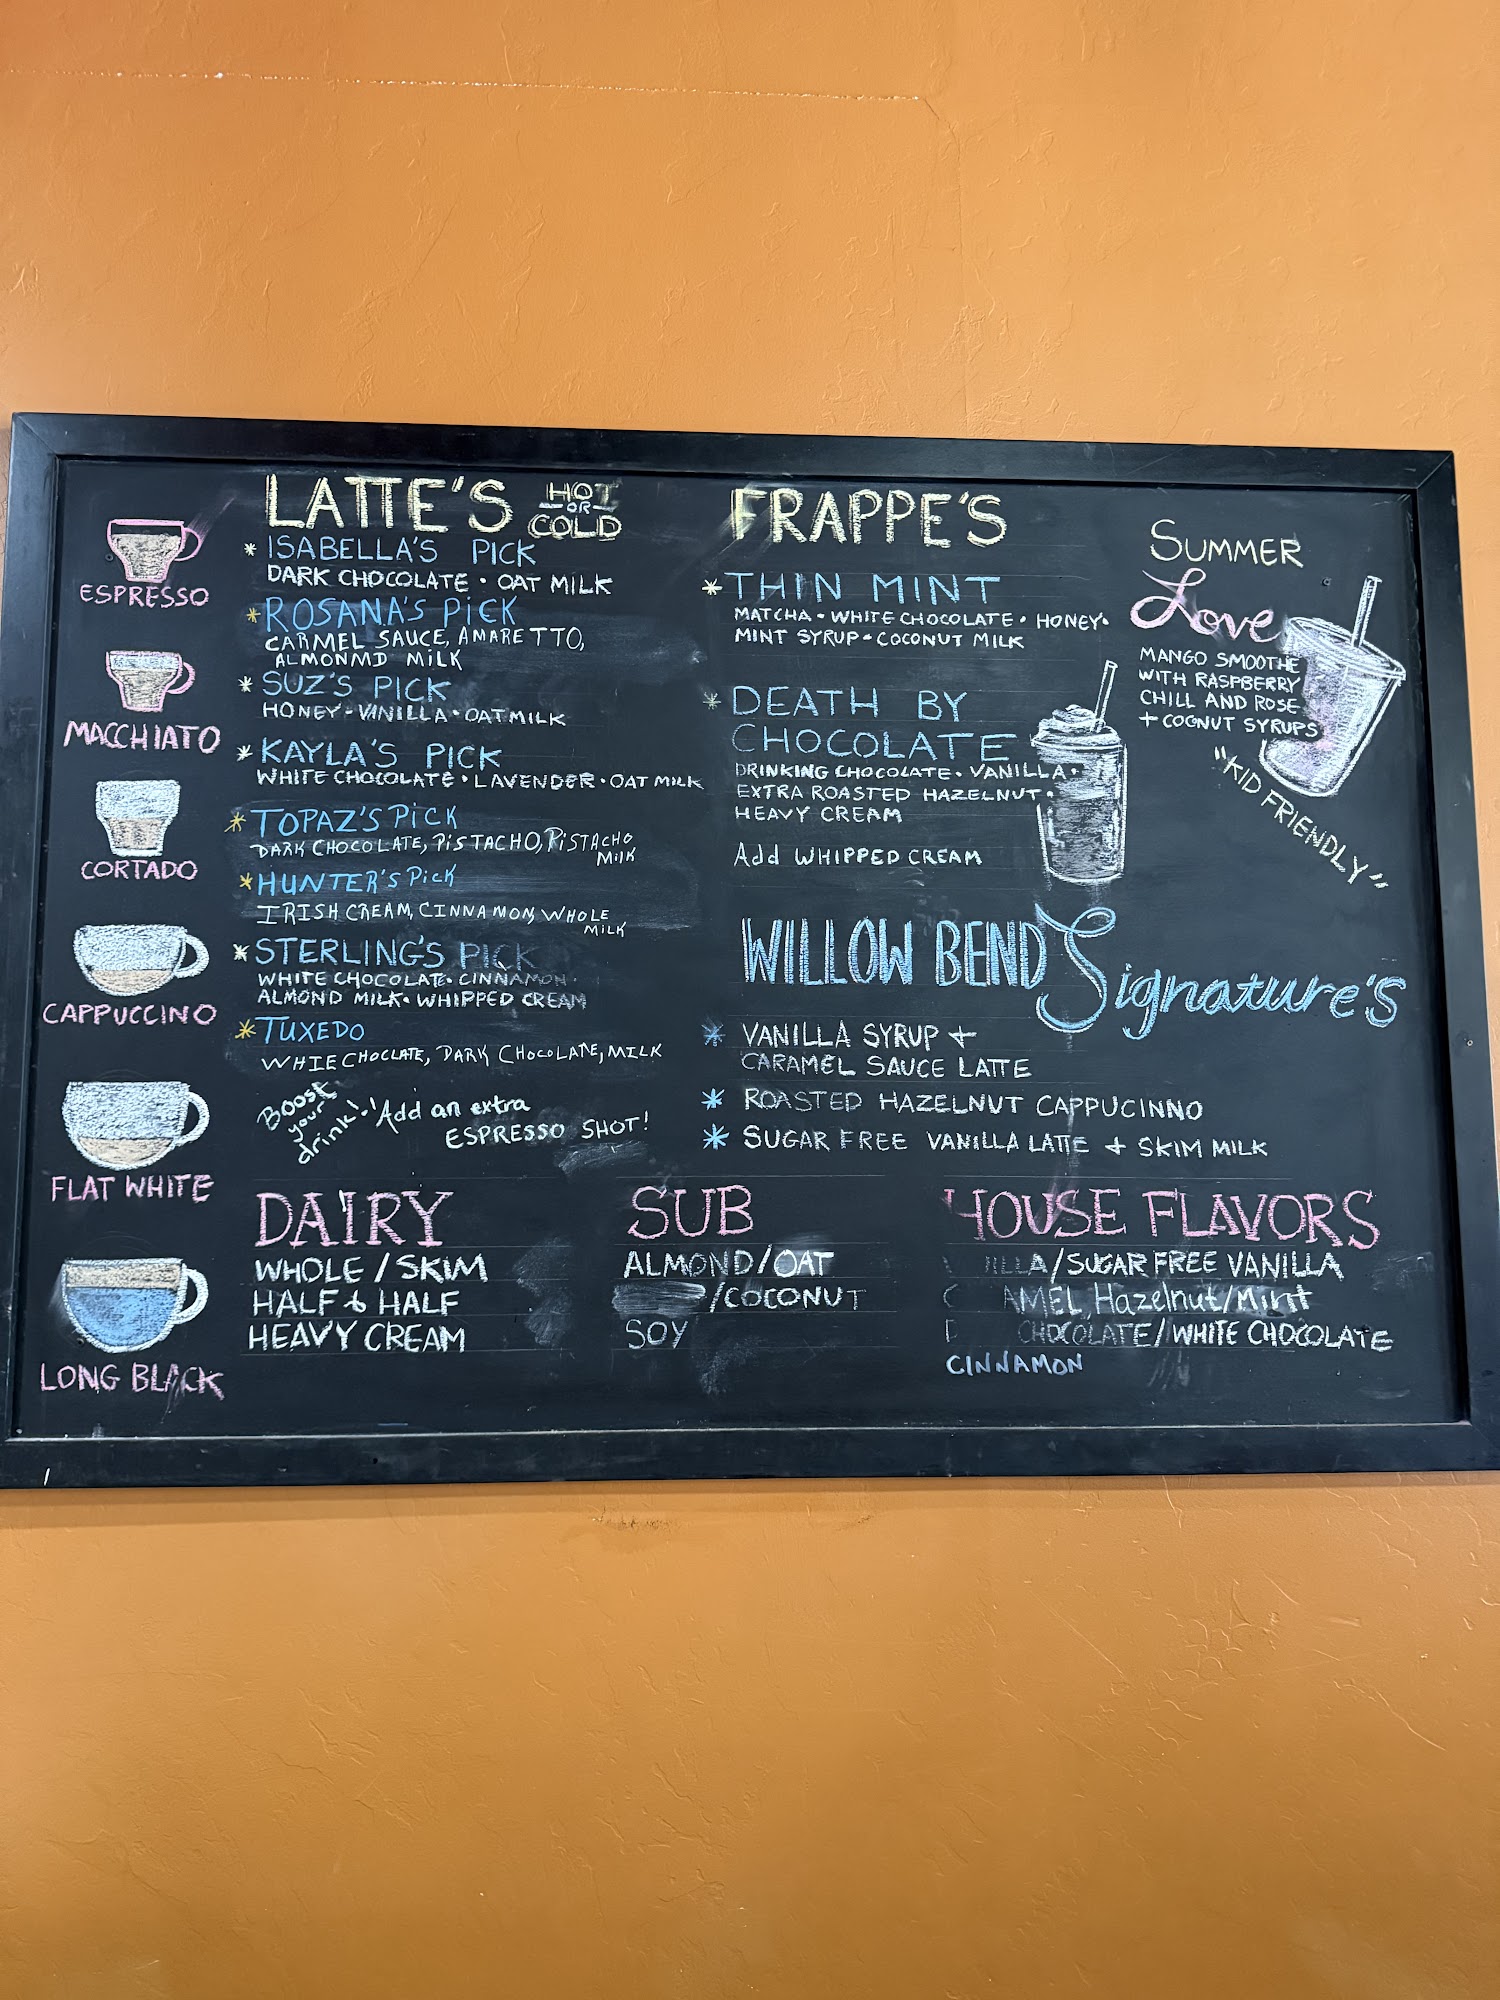 ESPRESSO
MACCHIATO
CORTADO
CAPPUCCINO
FLAT WHITE
LONG BLACK
LATTE'S
HOT
OR
COLD
* ISABELLA'S PICK
DARK CHOCOLATE • OAT MILK
* ROSANA'S PiCK
CARMEL SAUCE, AMARETTO,
ALMONMD MiLK
* SUZ'S PICK
HONEY - VANILLA • OAT MILK
* KAYLA'S PICK
WHITE CHOCOLATE • LAVENDER • OAT MILK
* TOPAZ'S PiCK
DARK CHOCOLATE, PiSTACHO, PiSTACHO
MilK
* HUNTER'S PicK
IRISH CREAM, CINNAMON, WHOLE
MiLK
* STERLING'S PICK
WHITE CHOCOLATE • CINNAMON •
ALMOND MILK • WHIPPED CREAM
* TUXEDO
WHIE CHOCLATE, DARK CHOCOLATE, MILK
Boost
your
drink!
! Add an extra
ESPRESSO SHOT!
FRAPPE'S
* THIN MINT
MATCHA • WHITE CHOCOLATE • HONEY •
MINT SYRUP • COCONUT MILK
* DEATH BY
CHOCOLATE
DRINKING CHOCOLATE • VANILLA •
EXTRA ROASTED HAZELNUT •
HEAVY CREAM
Add WHIPPED CREAM
SUMMER
Love
MANGO SMOOTHE
WITH RASPBERRY
CHILL AND ROSE
+ COCNUT SYRUPS
"KID FRIENDLY"
WILLOW BEND Signature's
* VANILLA SYRUP +
CARAMEL SAUCE LATTE
* ROASTED HAZELNUT CAPPUCINNO
* SUGAR FREE VANILLA LATTE + SKIM MILK
DAIRY
WHOLE / SKIM
HALF & HALF
HEAVY CREAM
SUB
ALMOND/OAT
/COCONUT
SOY
HOUSE FLAVORS
/SUGAR FREE VANILLA
Hazelnut/Mint
CHOCOLATE/WHITE CHOCOLATE
CINNAMON